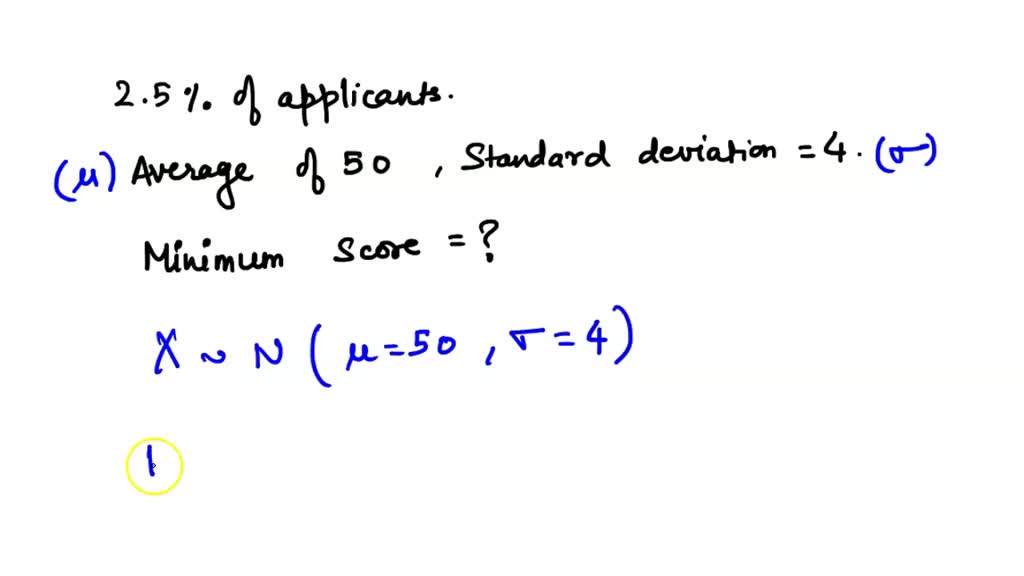 2.5 %. of applicants.
(μ) Average of 50 , Standard deviation = 4 . (σ)
Minimum Score = ?
X ~ N ( μ = 50 , σ = 4 )